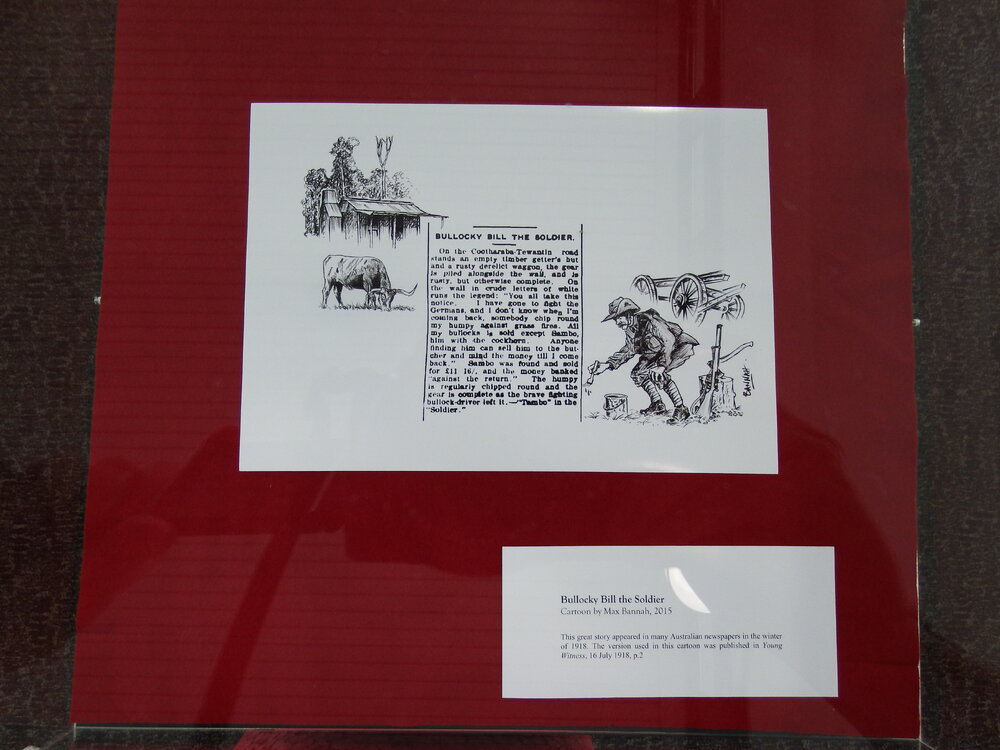 BULLOCKY BILL THE SOLDIER.
On the Cootharaba-Tewantin road
stands an empty timber getter's hut
and a rusty derelict waggon, the gear
is piled alongside the wall, and is
rusty, but otherwise complete. On
the wall in crude letters of white
runs the legend: "You all take this
notice. I have gone to fight the
Germans, and I don't know when I'm
coming back, somebody chip round
my humpy against grass fires. All
my bullocks is sold except Sambo,
him with the cockhorn. Anyone
finding him can sell him to the but-
cher and mind the money till I come
back." Sambo was found and sold
for £11 16/, and the money banked
"against the return." The humpy
is regularly chipped round and the
gear is complete as the brave fighting
bullock-driver left it.—"Tambo" in the
"Soldier."
BANNAH
Bullocky Bill the Soldier
Cartoon by Max Bannah, 2015
This great story appeared in many Australian newspapers in the winter
of 1918. The version used in this cartoon was published in Young
Witness, 16 July 1918, p.2